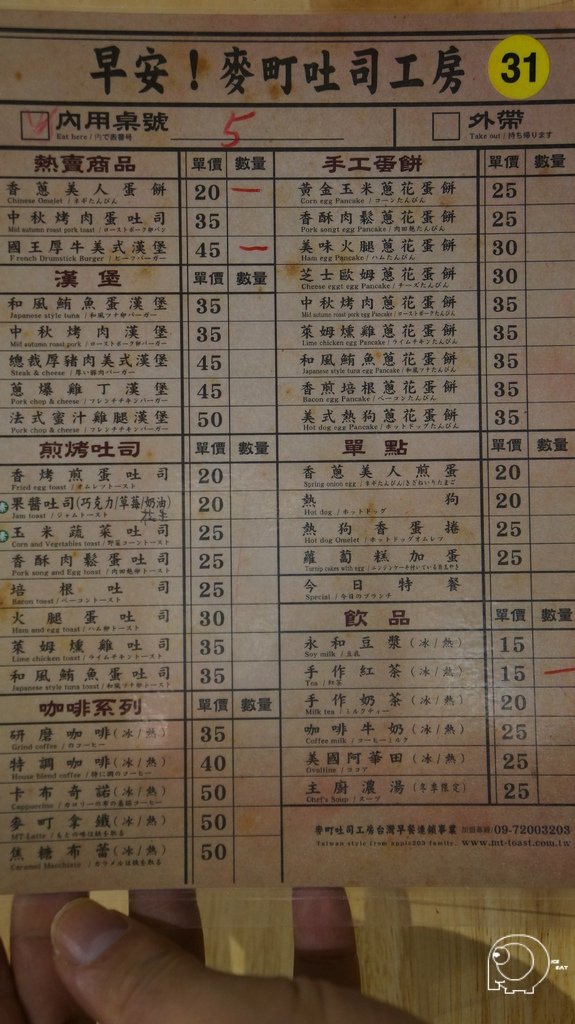 早安！麥町吐司工房 31
內用桌號 5 外帶
Eat here / 內で表番号 Take out / 持ち帰ります
熱賣商品 單價 數量
香蔥美人蛋餅 20 一
Chinese Omelet / ネギたんぴん
中秋烤肉蛋吐司 35
Mid autumn roast pork toast / ローストポーク卵パン
國王厚牛美式漢堡 45 一
French Drumstick Burger / ビーフバーガー
漢堡 單價 數量
和風鮪魚蛋漢堡 35
Japanese style tuna / 和風ツナ卵バーガー
中秋烤肉漢堡 35
Mid autumn roast pork / ローストポーク卵バーガー
總裁厚豬肉美式漢堡 45
Steak & cheese / 厚い豚肉バーガー
蔥爆雞丁漢堡 45
Pork chop & cheese / フレンチチキンバーガー
法式蜜汁雞腿漢堡 50
Pork chop & cheese / フレンチチキンバーガー
煎烤吐司 單價 數量
香烤煎蛋吐司 20
Fried egg toast / オムレツトースト
果醬吐司(巧克力/草莓/奶油) 20
Jam toast / ジャムトースト
玉米蔬菜吐司 25
Corn and Vegetables toast / 野菜コーントースト
香酥肉鬆蛋吐司 25
Pork song and Egg toast / 肉田麩卵トースト
培根吐司 25
Bacon toast / ベーコントースト
火腿蛋吐司 30
Ham and egg toast / ハム卵トースト
萊姆燻雞吐司 35
Lime chicken toast / ライムチキントースト
和風鮪魚蛋吐司 35
Japanese style tuna toast / 和風ツナ卵トースト
咖啡系列 單價 數量
研磨咖啡(冰/熱) 35
Grind coffee / のコーヒー
特調咖啡(冰/熱) 40
House blend coffee / 特に調のコーヒー
卡布奇諾(冰/熱) 50
麥町拿鐵(冰/熱) 50
焦糖布蕾(冰/熱) 50
手工蛋餅 單價 數量
黃金玉米蔥花蛋餅 25
Corn egg Pancake / コーンたんぴん
香酥肉鬆蔥花蛋餅 25
Pork songt egg Pancake / 肉田麩たんぴん
美味火腿蔥花蛋餅 30
Ham egg Pancake / ハムたんぴん
芝士歐姆蔥花蛋餅 30
Cheese eggt egg Pancake / チーズたんぴん
中秋烤肉蔥花蛋餅 35
Mid autumn roast pork egg Pancake / ローストポークたんぴん
萊姆燻雞蔥花蛋餅 35
Lime chicken egg Pancake / ライムチキンたんぴん
和風鮪魚蔥花蛋餅 35
Japanese style tuna egg Pancake / 和風ツナたんぴん
香煎培根蔥花蛋餅 35
Bacon egg Pancake / ベーコンたんぴん
美式熱狗蔥花蛋餅 35
Hot dog egg Pancake / ホットドッグたんぴん
單點 單價 數量
香蔥美人煎蛋 20
Spring onion egg
熱狗 20
Hot dog / ホットドッグ
熱狗香蛋捲 25
Hot dog Omelet / ホットドッグオムレフ
蘿蔔糕加蛋 25
Turnip cakes with egg
今日特餐
Special / 今日のブランチ
飲品 單價 數量
永和豆漿(冰/熱) 15
Soy milk / 豆乳
手作紅茶(冰/熱) 15 一
Tea / 紅茶
手作奶茶(冰/熱) 20
Milk tea / ミルクティー
咖啡牛奶(冰/熱) 25
Coffee milk / コーヒーミルク
美國阿華田(冰/熱) 25
Ovaltine / ココア
主廚濃湯(冬季限定) 25
Chef's Soup / スープ
麥町吐司工房台灣早餐連鎖事業 加盟專線 09-72003203
Taiwan style from apple203 family. www.mt-toast.com.tw